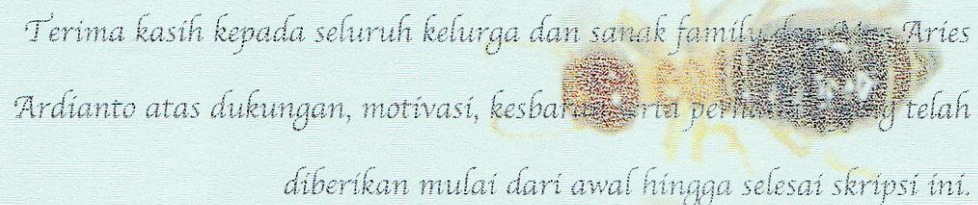 Terima kasih kepada seluruh kelurga dan sanak family dan Mas Aries
Ardianto atas dukungan, motivasi, serta yang telah
diberikan mulai dari awal hingga selesai skripsi ini.